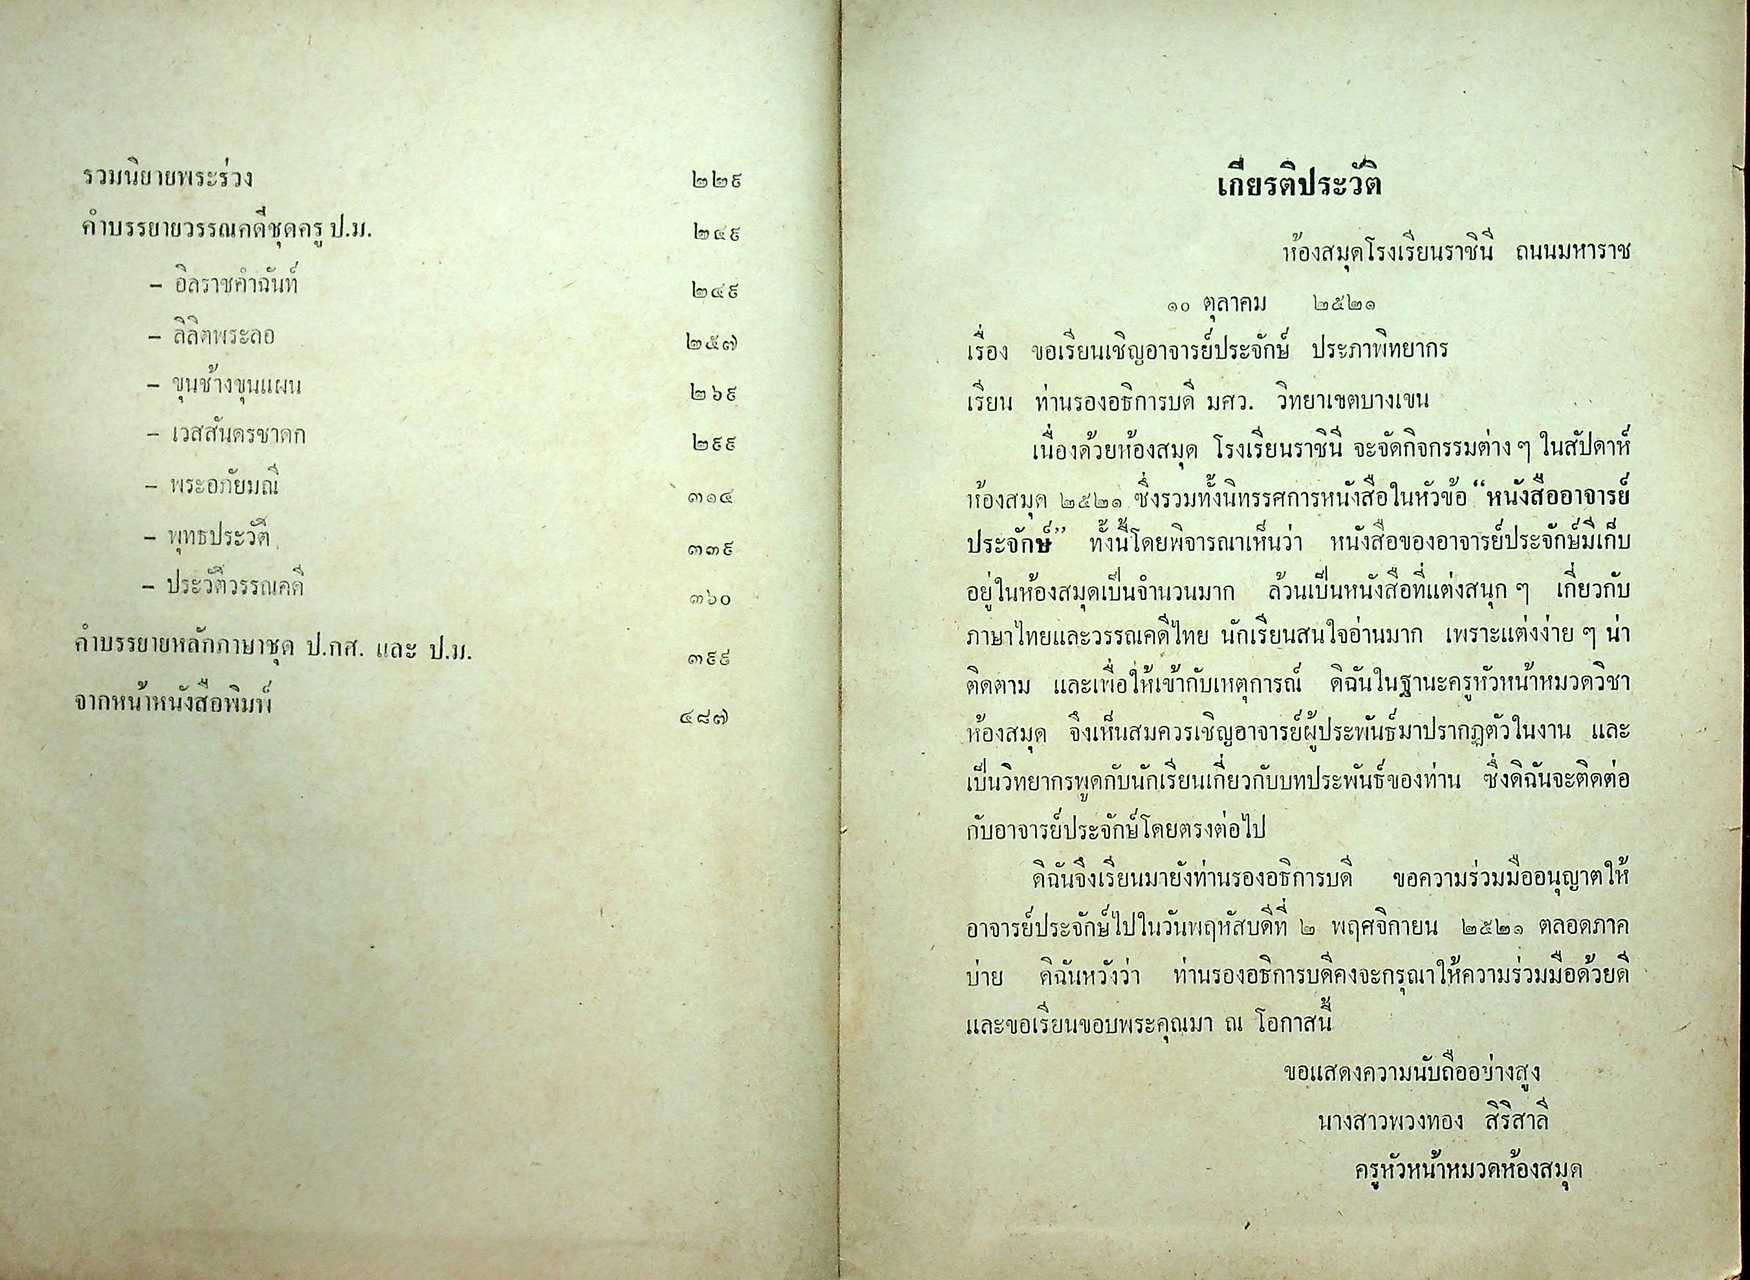 รวมนิยายพระร่วง ๒๒๙
คำบรรยายวรรณคดีชุดครู ป.ม. ๒๔๙
– อิลราชคำฉันท์ ๒๔๙
– ลิลิตพระลอ ๒๕๗
– ขุนช้างขุนแผน ๒๖๙
– เวสสันดรชาดก ๒๙๙
– พระอภัยมณี ๓๑๔
– พุทธประวัติ ๓๓๙
– ประวัติวรรณคดี ๓๖๐
คำบรรยายหลักภาษาชุด ป.กศ. และ ป.ม. ๓๙๙
จากหน้าหนังสือพิมพ์ ๔๘๗
เกียรติประวัติ
ห้องสมุดโรงเรียนราชินี ถนนมหาราช
๑๐ ตุลาคม ๒๕๒๑
เรื่อง ขอเรียนเชิญอาจารย์ประจักษ์ ประภาพิทยากร
เรียน ท่านรองอธิการบดี มศว. วิทยาเขตบางเขน
เนื่องด้วยห้องสมุด โรงเรียนราชินี จะจัดกิจกรรมต่าง ๆ ในสัปดาห์
ห้องสมุด ๒๕๒๑ ซึ่งรวมทั้งนิทรรศการหนังสือในหัวข้อ “หนังสืออาจารย์
ประจักษ์” ทั้งนี้โดยพิจารณาเห็นว่า หนังสือของอาจารย์ประจักษ์มีเก็บ
อยู่ในห้องสมุดเป็นจำนวนมาก ล้วนเป็นหนังสือที่แต่งสนุก ๆ เกี่ยวกับ
ภาษาไทยและวรรณคดีไทย นักเรียนสนใจอ่านมาก เพราะแต่งง่าย ๆ น่า
ติดตาม และเพื่อให้เข้ากับเหตุการณ์ ดิฉันในฐานะครูหัวหน้าหมวดวิชา
ห้องสมุด จึงเห็นสมควรเชิญอาจารย์ผู้ประพันธ์มาปรากฏตัวในงาน และ
เป็นวิทยากรพูดกับนักเรียนเกี่ยวกับบทประพันธ์ของท่าน ซึ่งดิฉันจะติดต่อ
กับอาจารย์ประจักษ์โดยตรงต่อไป
ดิฉันจึงเรียนมายังท่านรองอธิการบดี ขอความร่วมมืออนุญาตให้
อาจารย์ประจักษ์ไปในวันพฤหัสบดีที่ ๒ พฤศจิกายน ๒๕๒๑ ตลอดภาค
บ่าย ดิฉันหวังว่า ท่านรองอธิการบดีคงจะกรุณาให้ความร่วมมือด้วยดี
และขอเรียนขอบพระคุณมา ณ โอกาสนี้
ขอแสดงความนับถืออย่างสูง
นางสาวพวงทอง สิริสาลี
ครูหัวหน้าหมวดห้องสมุด